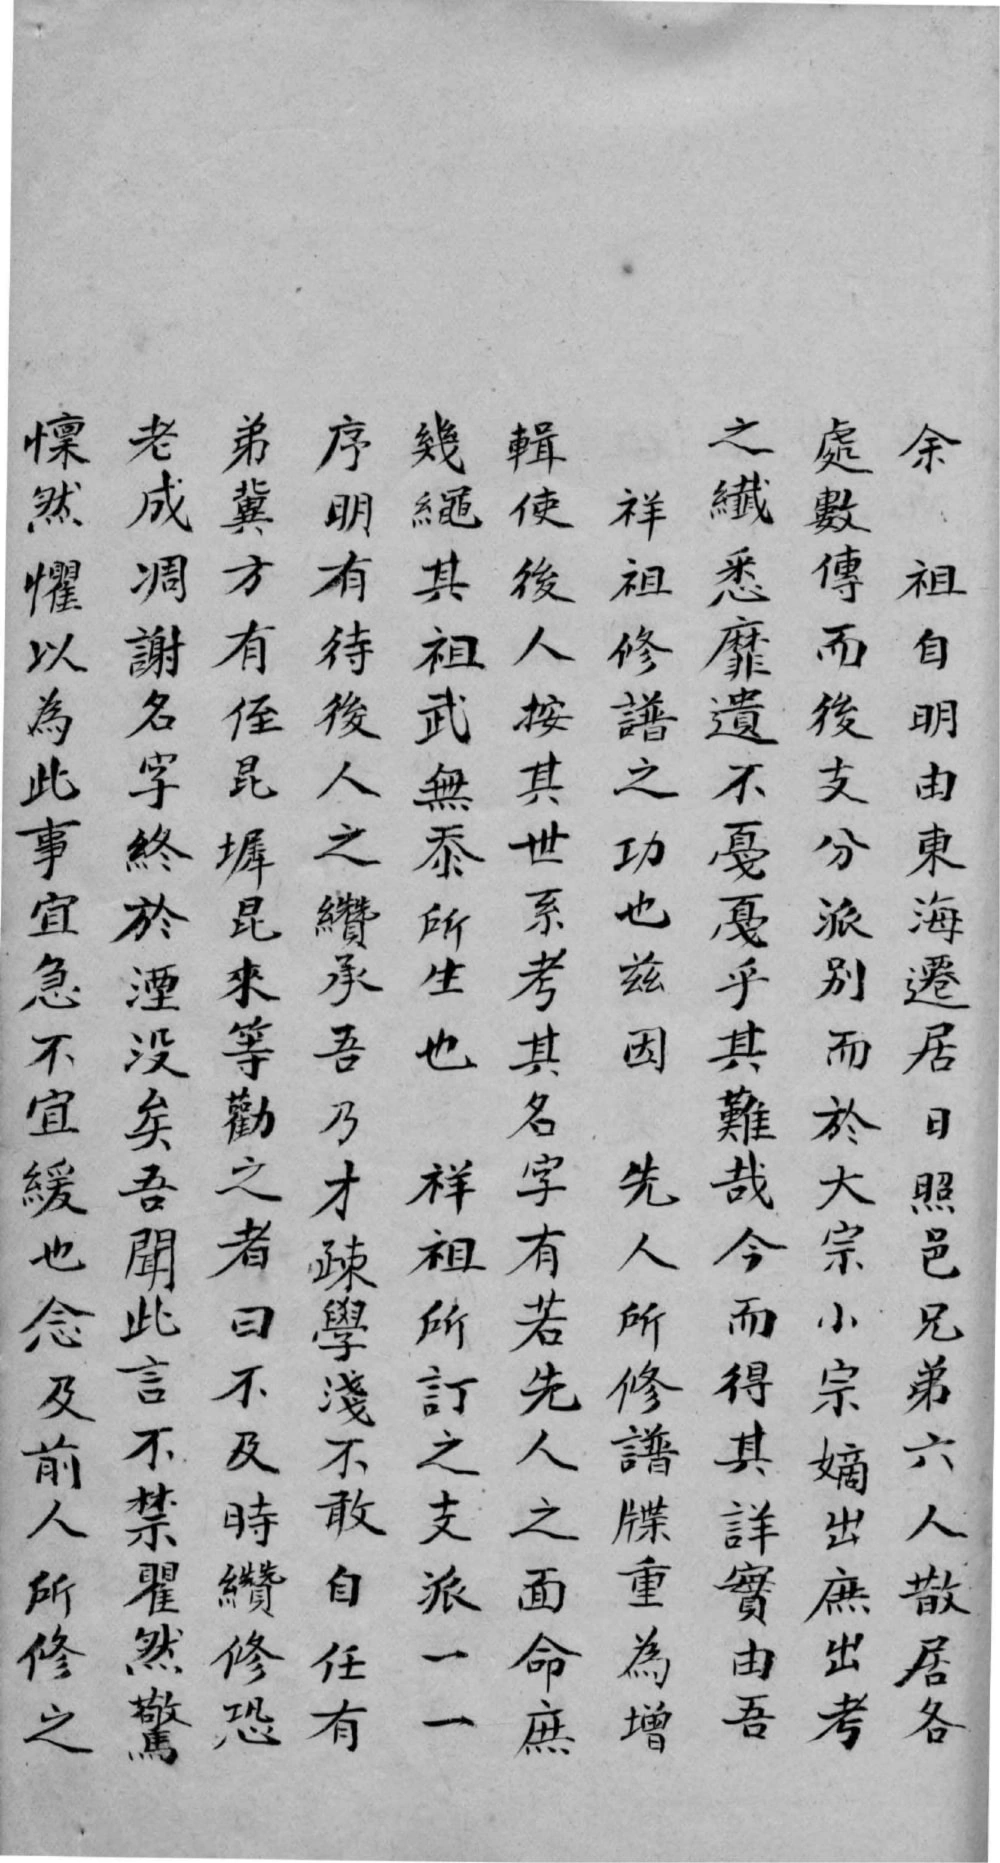 余　祖自明由東海遷居日照邑兄弟六人散居各
處數傳而後支分派別而於大宗小宗嫡出庶出考
之纖悉靡遺不戞戞乎其難哉今而得其詳實由吾
祥祖修譜之功也兹因　先人所修譜牒重為增
輯使後人按其世系考其名字有若先人之面命庶
幾繩其祖武無忝所生也　祥祖所訂之支派一一
序明有待後人之纘承吾乃才疎學淺不敢自任有
弟冀方有侄昆墀昆來等勸之者曰不及時纘修恐
老成凋謝名字終於湮没矣吾聞此言不禁瞿然驚
懍然懼以為此事宜急不宜緩也念及前人所修之